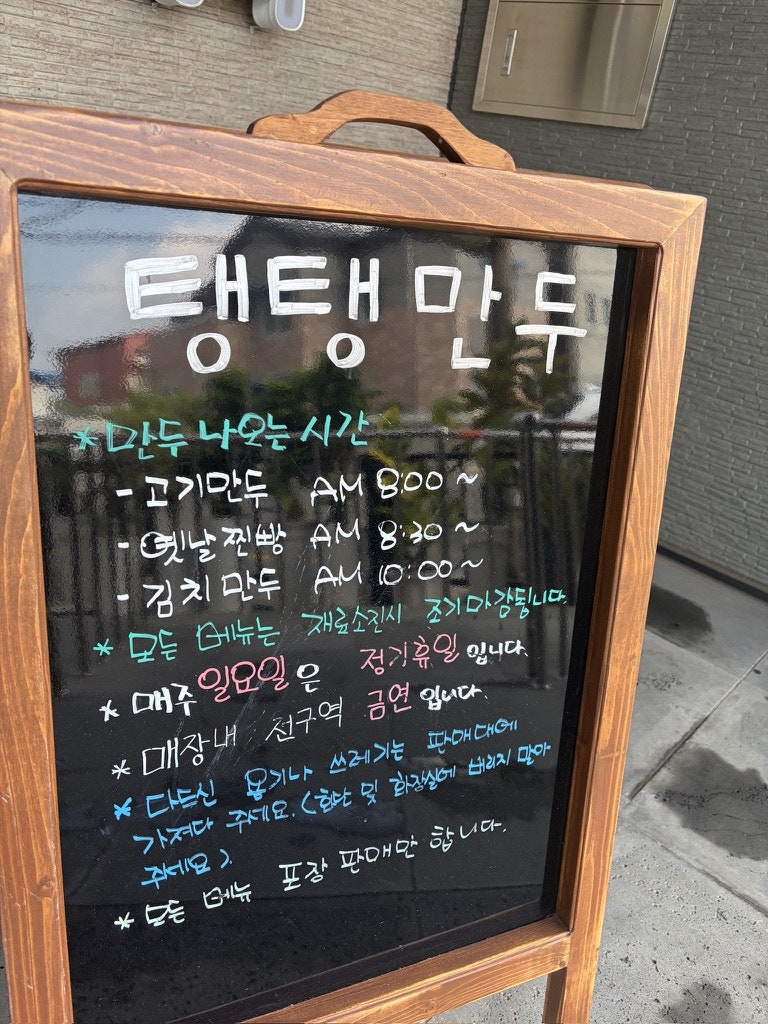 탱탱만두
* 만두 나오는 시간
- 고기만두 AM 8:00 ~
- 옛날찐빵 AM 8:30 ~
- 김치만두 AM 10:00 ~
* 모든 메뉴는 재료소진시 조기마감됩니다.
* 매주 일요일은 정기휴일입니다.
* 매장내 전구역 금연입니다.
* 다드신 용기나 쓰레기는 판매대에
가져다 주세요. (화단 및 화장실에 버리지 말아
주세요)
* 모든 메뉴 포장 판매만 합니다.